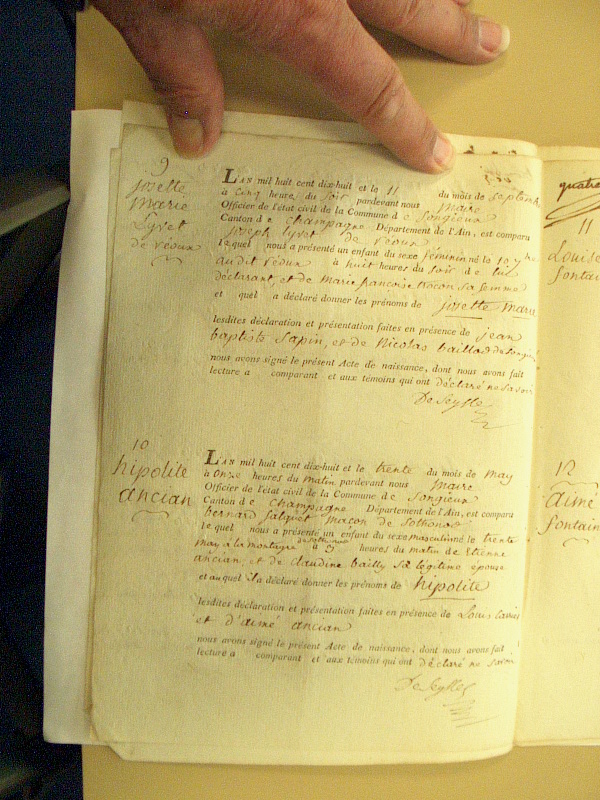 9
josette
marie
Lyvet
de veoux
LAN mil huit cent dix-huit et le 11 du mois de septembre
à cinq heures du soir pardevant nous maire
Officier de l'état civil de la Commune de Songieux
Canton de champagne Département de l'Ain, est comparu
joseph lyvet de veoux
lequel nous a présenté un enfant du sexe féminin né le 10
audit veoux à huit heures du soir de lui
déclarant, et de marie françoise trocon sa femme
et quel a déclaré donner les prénoms de josette marie
lesdites déclaration et présentation faites en présence de jean
baptiste Sapin, et de Nicolas baillod de Songieux
nous avons signé le présent Acte de naissance, dont nous avons fait
lecture à comparant et aux témoins qui ont déclaré ne savoir
DeSeyssel
10
hipolite
ancian
LAN mil huit cent dix-huit et le trente du mois de may
à onze heures du matin pardevant nous maire
Officier de l'état civil de la Commune de Songieux
Canton de champagne Département de l'Ain, est comparu
bernard falquet macon de Sothonod
lequel nous a présenté un enfant du sexe masculin né le trente
may à la montagne de Sothonod à heures du matin de Etienne
ancian et de claudine bailly sa légitime épouse
et auquel il a déclaré donner les prénoms de hipolite
lesdites déclaration et présentation faites en présence de Louis
et d'aimé ancian
nous avons signé le présent Acte de naissance, dont nous avons fait
lecture à comparant et aux témoins qui ont déclaré ne savoir
DeSeyssel
quatre
11
Louise
fontai
12
aimé
fontain